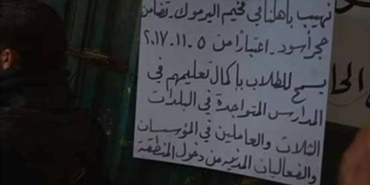 نهيب بأهلنا في مخيم اليرموك. تضامن
حجر أسود. اعتباراً من ٥-١١-٢٠١٧
يسمح للطلاب بإكمال تعليمهم في
المدارس المتواجدة في البلدات
الثلاث والعاملين في المؤسسات
والفعاليات المدنية من دخول المنطقة